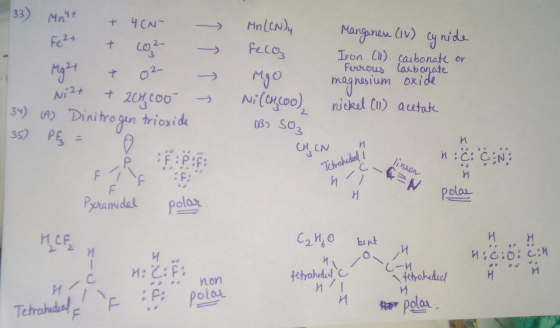 33) Mn⁴⁺ + 4CN⁻ → Mn(CN)₄ Manganese (IV) cynide
Fe²⁺ + CO₃²⁻ → FeCO₃ Iron (II) carbonate or
Ferrous Carbonate
Mg²⁺ + O²⁻ → MgO magnesium oxide
Ni²⁺ + 2CH₃COO⁻ → Ni(CH₃COO)₂ nickel (II) acetate
34) (A) Dinitrogen trioxide (B) SO₃
35) PF₃ =
P
F F F
Pyramidal
F P F
F
polar
CH₃CN
Tetrahedral
linear
H
C C≡N
H H
H
H C C N
H
polar
H₂CF₂
H
C
H F F
Tetrahedral
H
H C F
F
non
polar
C₂H₆O
bent
O
H C C H
H H H H
tetrahedral
tetrahedral
polar
H H
H C O C H
H H